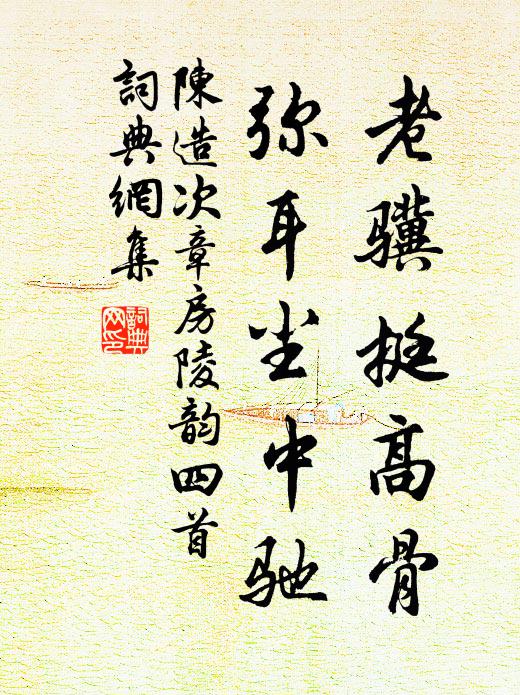 老骥挺高骨
弥耳尘中驰
陳造次章房陵韵四首
詞典網集
詞典
网印